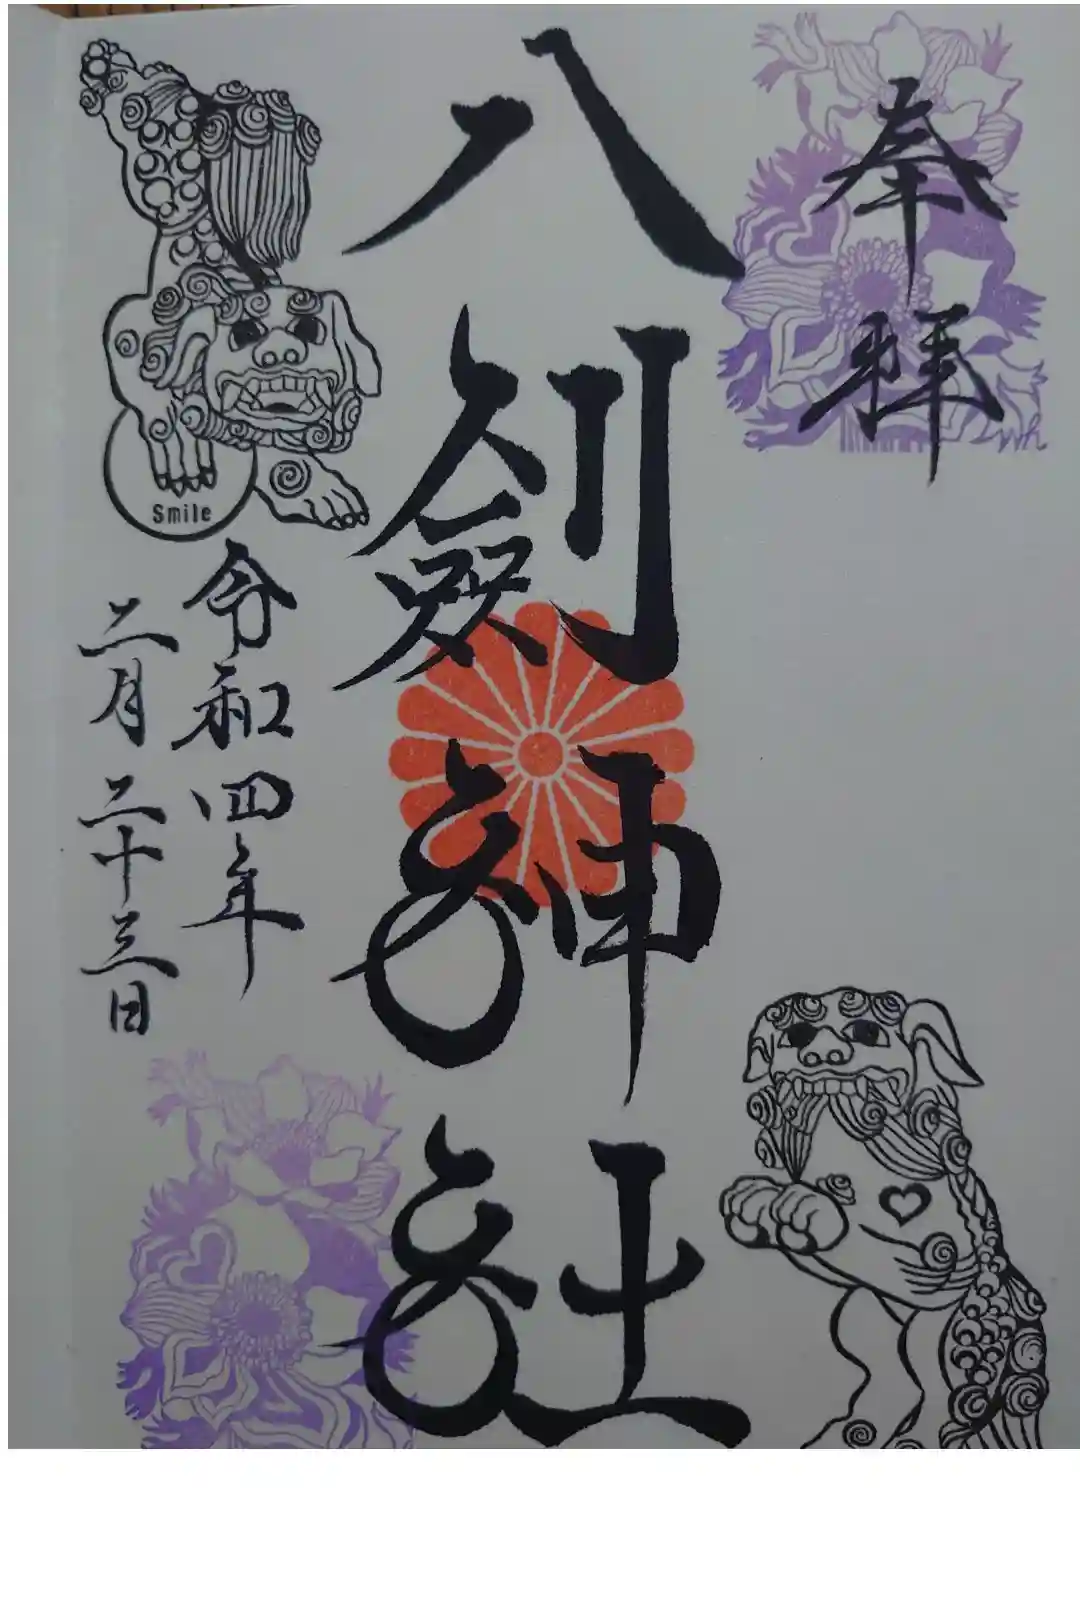 奉拝
八劔神社
令和四年
二月二十三日
Smile
wh